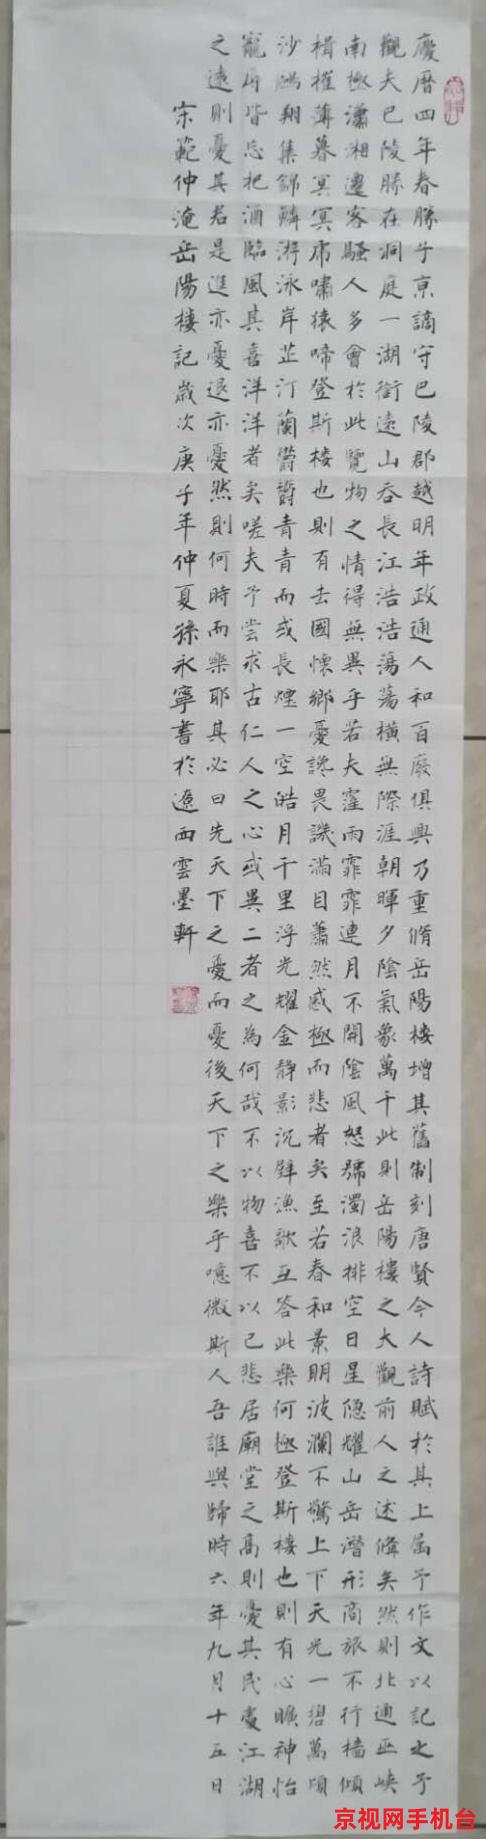 慶曆四年春滕子京謫守巴陵郡越明年政通人和百廢俱興乃重脩岳陽樓增其舊制刻唐賢今人詩賦於其上屬予作文以記之予
觀夫巴陵勝在洞庭一湖銜遠山吞長江浩浩蕩蕩橫無際涯朝暉夕陰氣象萬千此則岳陽樓之大觀前人之述備矣然則北通巫峽
南極瀟湘遷客騷人多會於此覽物之情得無異乎若夫窪雨霏霏連月不開陰風怒號濁浪排空日星隱耀山岳潛形商旅不行檣傾
楫摧薄暮冥冥虎嘯猿啼登斯樓也則有去國懷鄉憂讒畏譏滿目蕭然感極而悲者矣至若春和景明波瀾不驚上下天光一碧萬頃
沙鷗翔集錦鱗游泳岸芷汀蘭鬱鬱青青而或長煙一空皓月千里浮光耀金靜影沉璧漁歌互答此樂何極登斯樓也則有心曠神怡
寵辱皆忘把酒臨風其喜洋洋者矣嗟夫予嘗求古仁人之心或異二者之為何哉不以物喜不以己悲居廟堂之高則憂其民處江湖
之遠則憂其君是進亦憂退亦憂然則何時而樂耶其必曰先天下之憂而憂後天下之樂乎噫微斯人吾誰與歸時六年九月十五日
宋範仲淹岳陽樓記歲次庚子年仲夏孫永寧書於遼西雲墨軒
京视网手机台